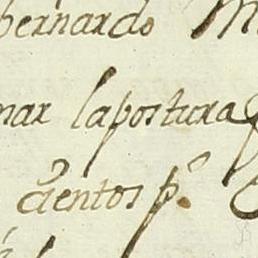 bernardo
mar lapostura
cientos p.º